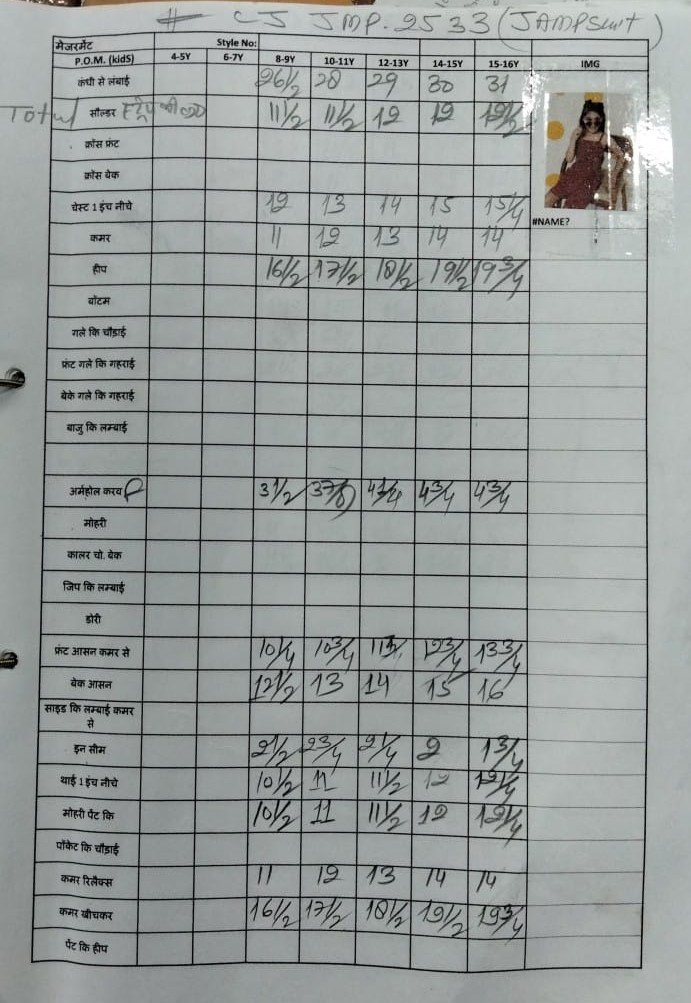 # CJ JMP. 2533 (JAMPSuit)
मेजरमेंट Style No:
P.O.M. (kidS) 4-5Y 6-7Y 8-9Y 10-11Y 12-13Y 14-15Y 15-16Y IMG
कंधी से लंबाई 26½ 28 29 30 31
Total सौल्डर स्ट्रेप की 11½ 11½ 12 12 12½
क्रॉस फ्रंट
क्रॉस बेक
चेस्ट 1 इंच नीचे 12 13 14 15 15¼
#NAME?
कमर 11 12 13 14 14
हीप 16½ 17½ 18½ 19½ 19¾
बॉटम
गले कि चौड़ाई
फ्रंट गले कि गहराई
बेके गले कि गहराई
बाजु कि लम्बाई
अर्महोल करव 3½ 37/8 4¼ 4¾ 4¾
मोहरी
कालर चो. बेक
जिप कि लम्बाई
डोरी
फ्रंट आसन कमर से 10¼ 10¾ 12¾ 13¾
बेक आसन 12½ 13 14 15 16
साइड कि लम्बाई कमर
से
इन सीम 2½ 2¾ 2¼ 2 1¾
थाई 1 इंच नीचे 10½ 11 11½ 12 12¼
मोहरी पेंट कि 10½ 11 11½ 12 12¼
पॉकेट कि चौड़ाई
कमर रिलैक्स 11 12 13 14 14
कमर खीचकर 16½ 17½ 18½ 19½ 19¾
पेंट कि हीप